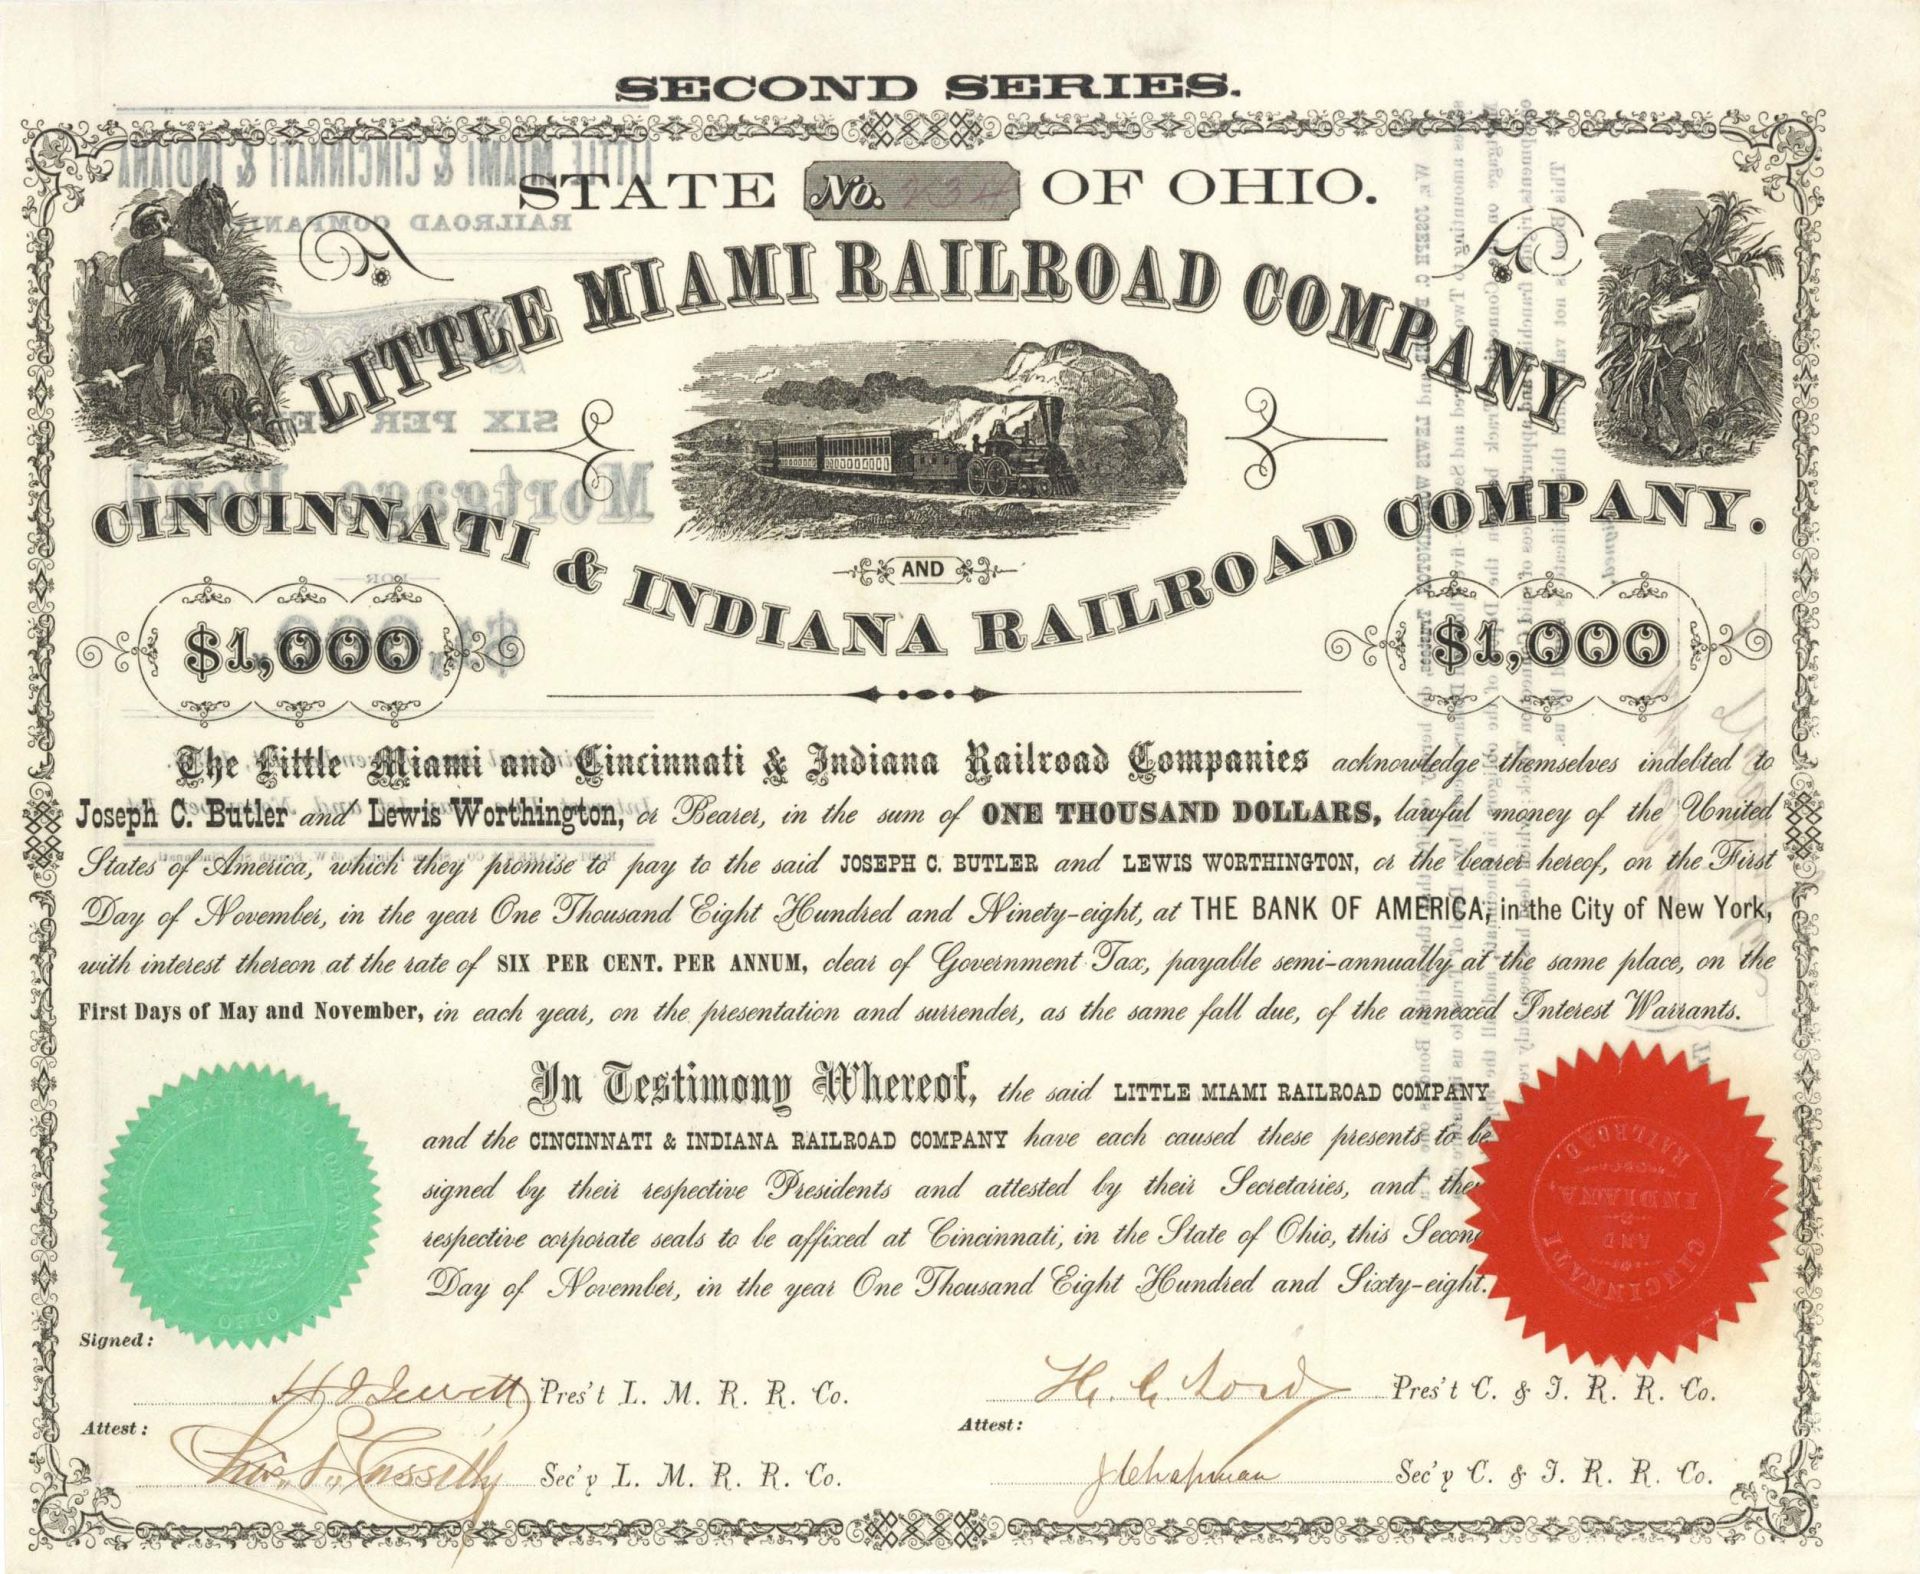 SECOND SERIES.
STATE No. 234 OF OHIO.
LITTLE MIAMI RAILROAD COMPANY
AND
CINCINNATI & INDIANA RAILROAD COMPANY.
$1,000 $1,000
The Little Miami and Cincinnati & Indiana Railroad Companies acknowledge themselves indebted to
Joseph C. Butler and Lewis Worthington, or Bearer, in the sum of ONE THOUSAND DOLLARS, lawful money of the United
States of America, which they promise to pay to the said JOSEPH C. BUTLER and LEWIS WORTHINGTON, or the bearer hereof, on the First
Day of November, in the year One Thousand Eight Hundred and Ninety-eight, at THE BANK OF AMERICA, in the City of New York,
with interest thereon at the rate of SIX PER CENT. PER ANNUM, clear of Government Tax, payable semi-annually at the same place, on the
First Days of May and November, in each year, on the presentation and surrender, as the same fall due, of the annexed Interest Warrants.
In Testimony Whereof, the said LITTLE MIAMI RAILROAD COMPANY
and the CINCINNATI & INDIANA RAILROAD COMPANY have each caused these presents to be
signed by their respective Presidents and attested by their Secretaries, and their
respective corporate seals to be affixed at Cincinnati, in the State of Ohio, this Second
Day of November, in the year One Thousand Eight Hundred and Sixty-eight.
OHIO
CINCINNATI AND INDIANA RAILROAD.
Signed:
H J Jewett Pres't L. M. R. R. Co. H. C. Lord Pres't C. & I. R. R. Co.
Attest: Attest:
Cassilly Sec'y L. M. R. R. Co. J Chapman Sec'y C. & I. R. R. Co.